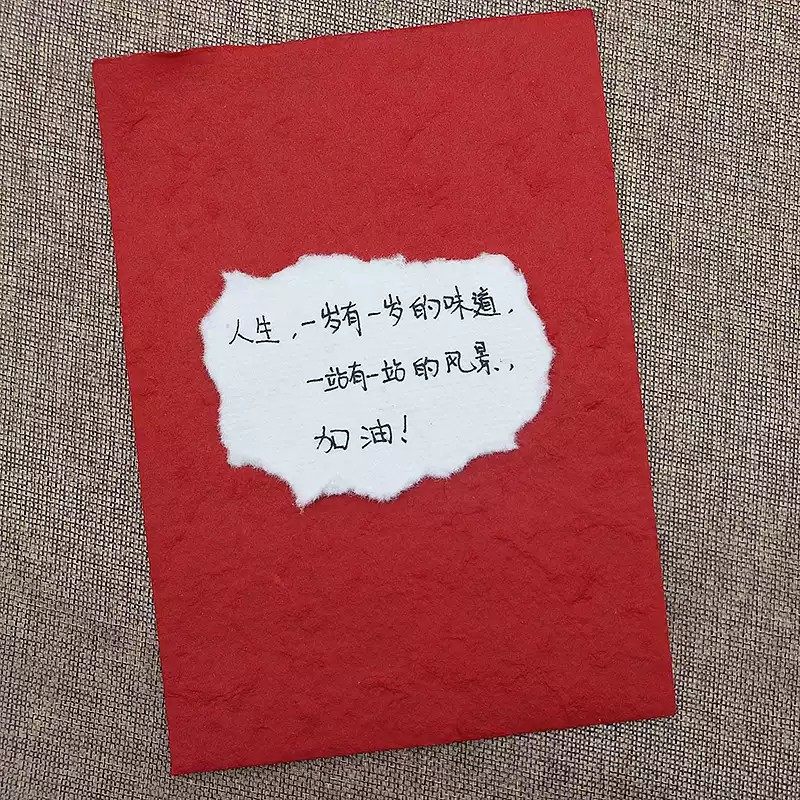 人生，一岁有一岁的味道，
一站有一站的风景，
加油！